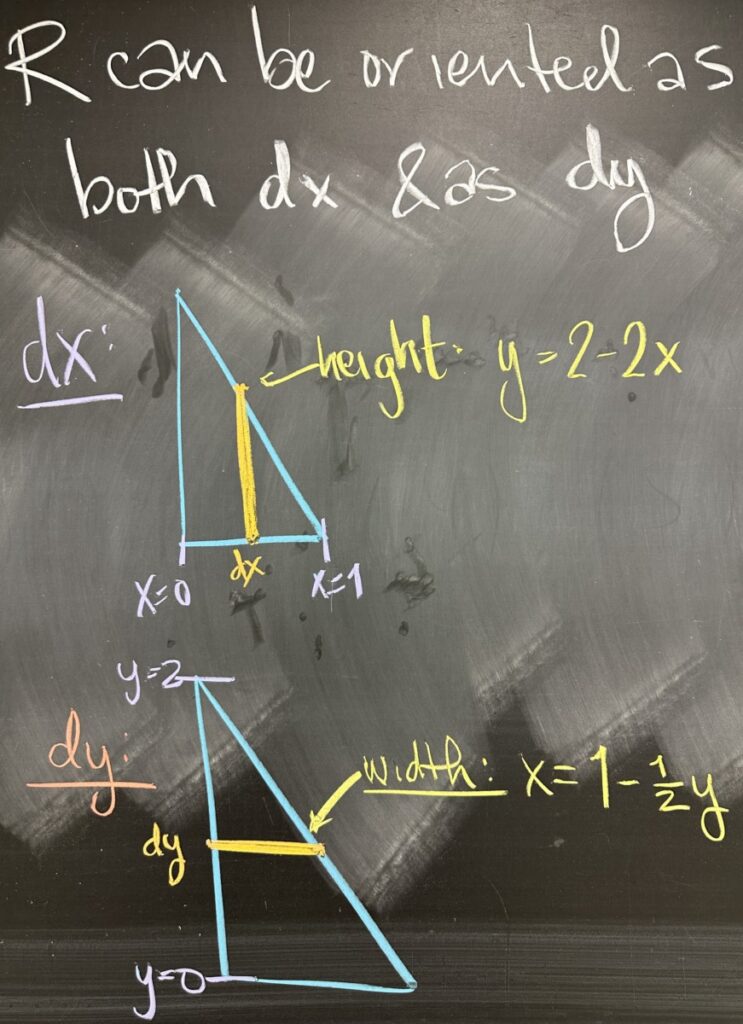 R can be oriented as
both dx & as dy
dx:
height: y = 2 - 2x
dx
x=0
x=1
y=2
dy:
width: x = 1 - 1/2 y
dy
y=0